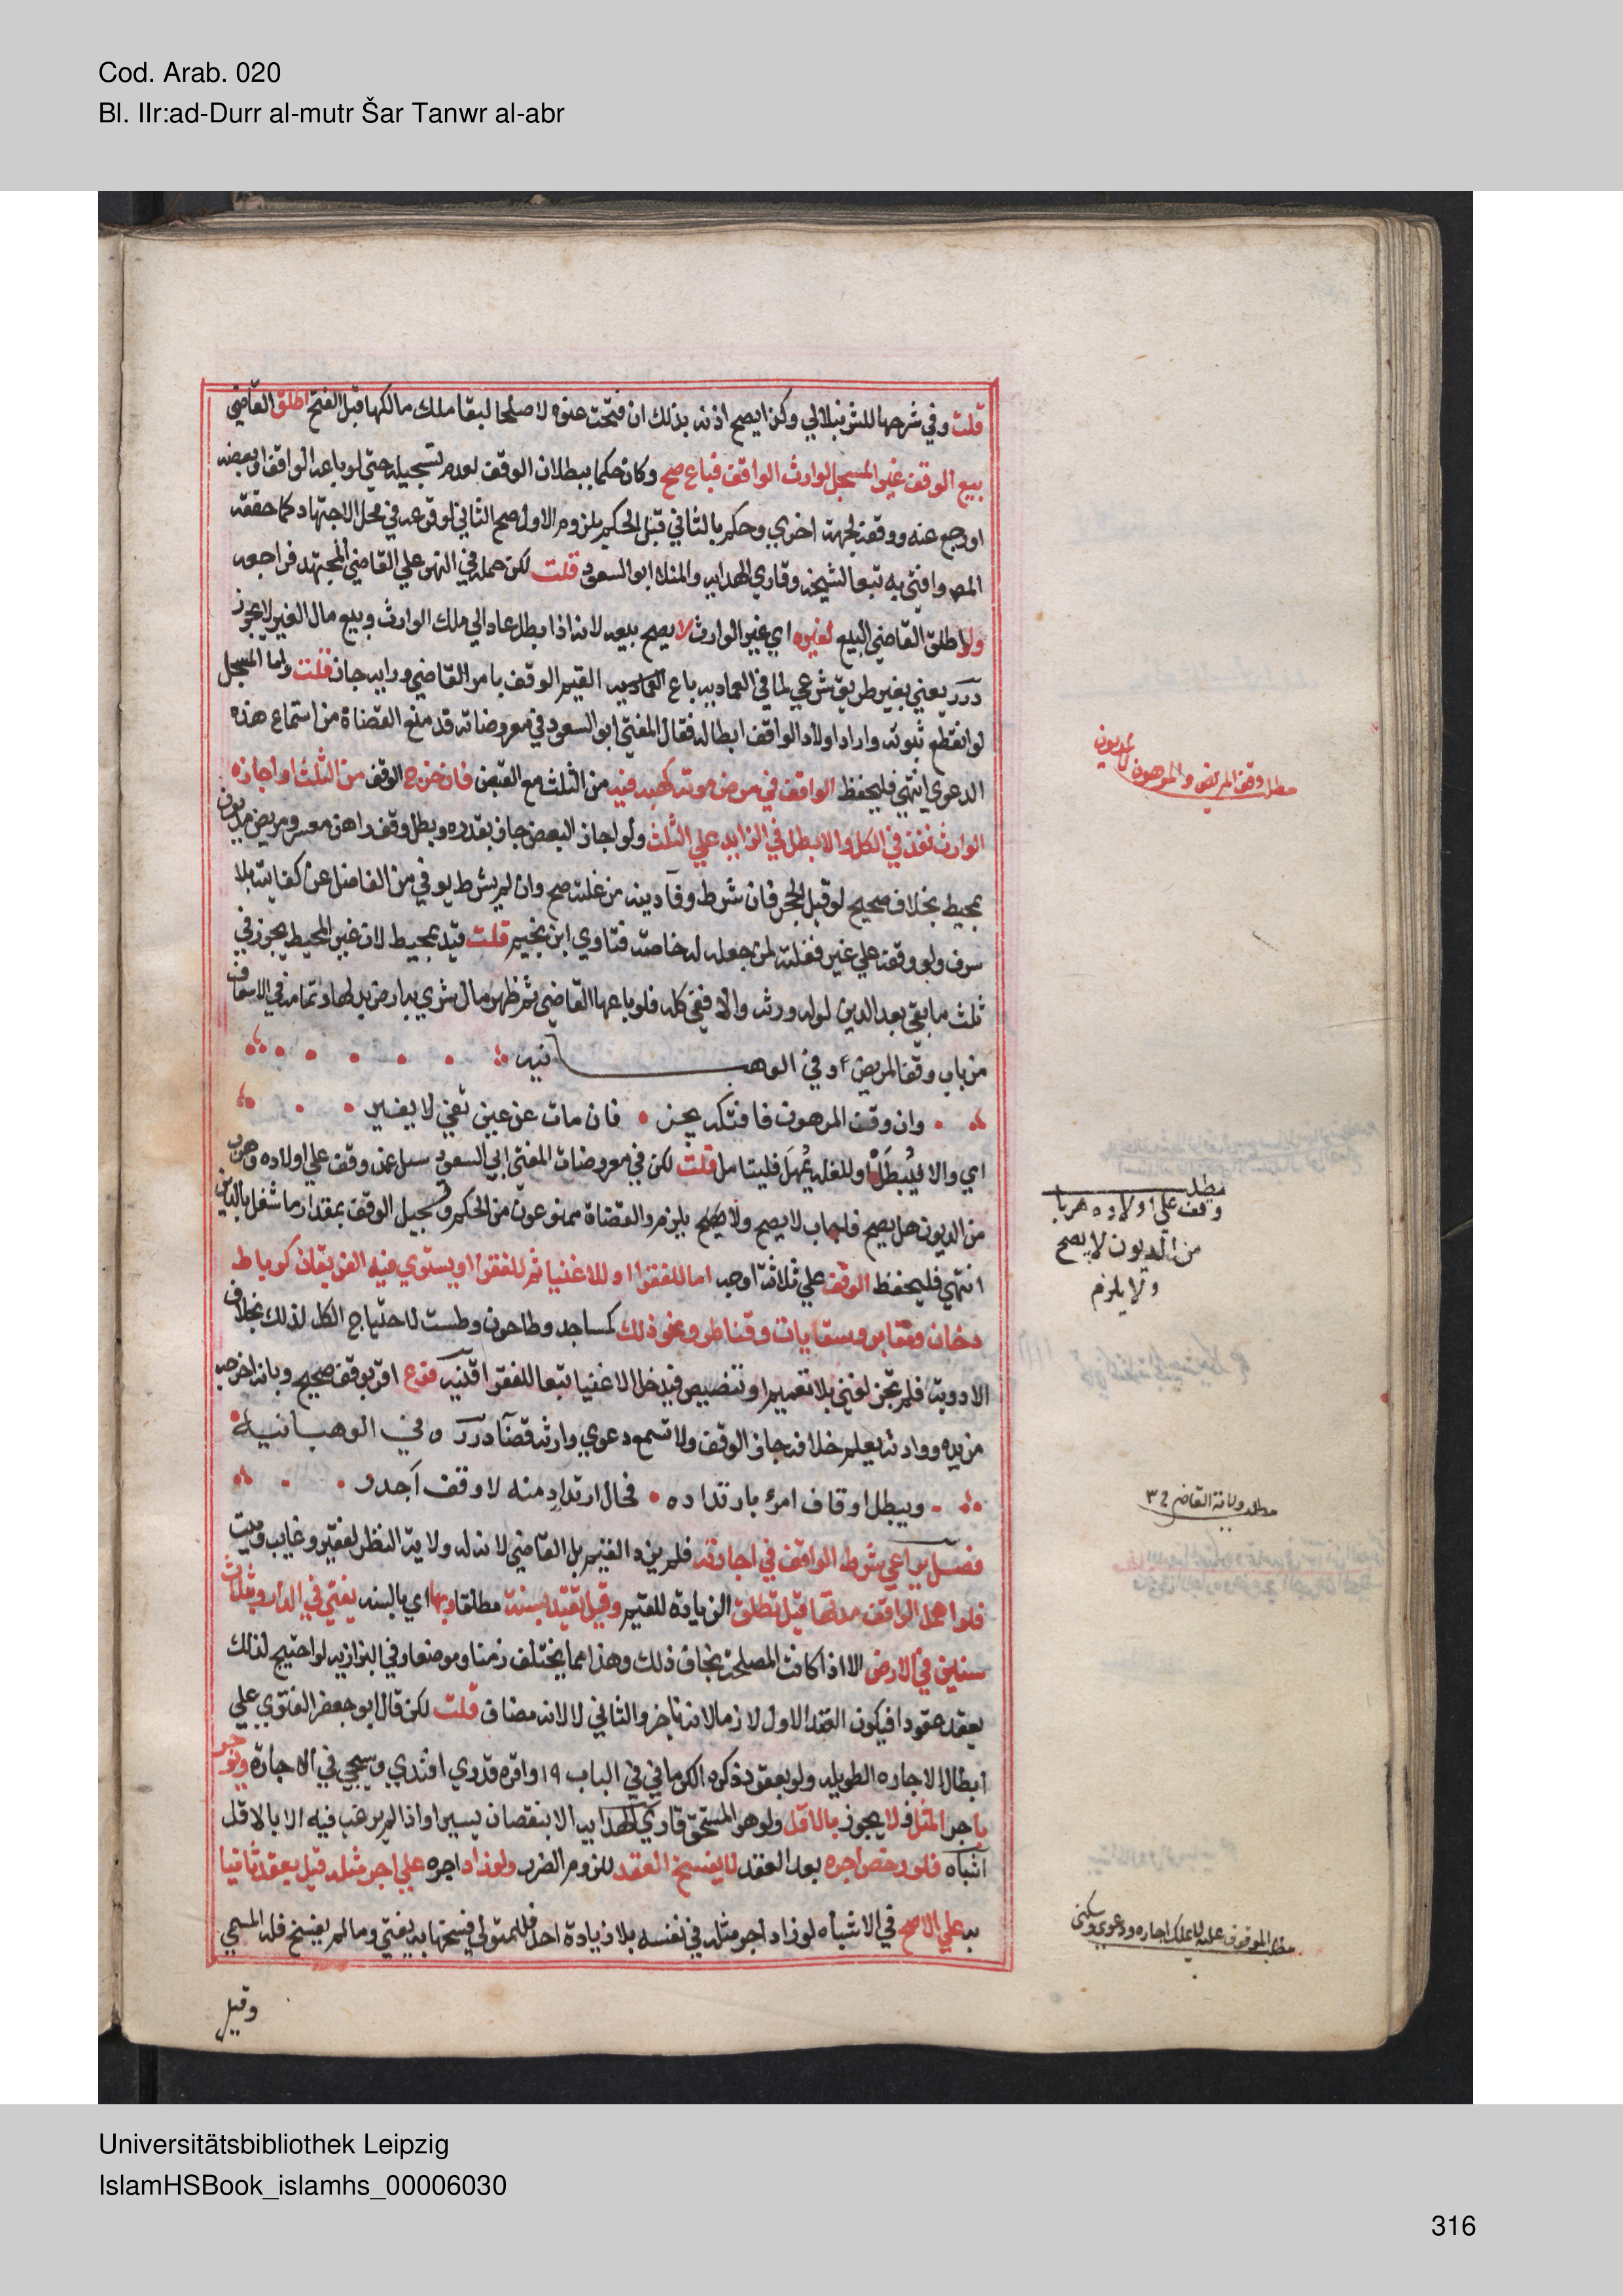 Cod. Arab. 020
Bl. IIr:ad-Durr al-mutr Šar Tanwr al-abr
قلت وفي شرحها للشرنبلالي وكذا يصح اذنه بذلك ان فتحت عنوة لا صلحا لبقا ملك مالكها قبل الفتح اطلق القاضي
بيع الوقف غير المسجل لوارث الواقف فباع صح وكان حكما ببطلان الوقف لعدم تسجيله حتى لو باعه الواقف او بعضه
او رجع عنه ووقفه لجهة اخري وحكم بالثاني قبل الحكم بلزوم الاول صح الثاني لوقوعه في محل الاجتهاد كما حققه
المص وافتي به تبعا لشيخه وقاري الهدايه والمنلا ابو السعود قلت لكن حمله في النهر علي القاضي المجتهد فراجعه
ولو اطلق القاضي البيع لغيره اي غير الوارث لا يصح بيعه لانه اذا بطل عاد الي ملك الوارث وبيع مال الغير لا يجوز
درر يعني بغير طريق شرعي لما في العماديه باع القيم الوقف بامر القاضي ورايه جاز قلت واما المسجل
لو انقطع ثبوته واراد اولاد الواقف ابطاله فقال المفتي ابو السعود في معروضاته قد منع القضاة من استماع هذه
الدعوي انتهي فليحفظ الواقف في مرض موته كهبه فيه من الثلث مع القبض فان خرج الوقف من الثلث او اجازه
الوارث نفذ في الكل والا بطل في الزايد علي الثلث ولو اجاز البعض جاز بقدره وبطل وقف راهن معسر ومريض مديون
بمحيط بخلاف صحيح لو قبل الحجر فان شرط وفآ دينه من غلته صح وان لم يشرط يوفي من الفاضل عن كفايته بلا
سرف ولو وقفه علي غيره فغلته لمن جعله له خاصه فتاوي ابن نجيم قلت قيد بمحيط لان غير المحيط يجوز في
ثلث ما بقي بعد الدين لو له ورثه والا ففي كله فلو باعها القاضي ثم ظهر مال شري به ارض بدلها وتمامه في الاسعاف
من باب وقف المريض وفي الوهبانيه
وان وقف المرهون فافتكه يجز فان مات عن عين تفي لا يغير
اي والا فيُبطَل او للغله يُمهَل فليتامل قلت لكن في معروضات المفتي ابي السعود سيل عمن وقف علي اولاده وهرب
من الديون هل يصح فاجاب لا يصح ولا يلزم والقضاة ممنوعون من الحكم وتسجيل الوقف بمقدار ما شغل بالدين
انتهي فليحفظ الوقف علي ثلاثة اوجه اما للفقرا او للاغنيا ثم للفقرا او يستوي فيه الفريقان كرباط
وخان ومقابر وسقايات وقناطر ونحو ذلك كمساجد وطاحون وطست لاحتياج الكل لذلك بخلاف
الادوية فلم تجز لغني بلا تعميم او تنصيص فيدخل الاغنيا تبعا للفقرا قنيه فرع اقر بوقف صحيح وبانه اخرجه
من يده ووارثه يعلم خلافه جاز الوقف ولا تسمع دعوي وارثه قضآ درر وفي الوهبانية
ويبطل اوقاف امرئ بارتداده فحال ارتداد منه لا وقف اجدر
فصل يراعي شرط الواقف في اجارته فلم يزد القيم بل القاضي لان له ولاية النظر لفقير وغايب وميت
فلو اهمل الواقف مدتها قيل تطلق الزيادة للقيم وقيل تقيد بسنة مطلقا وبها اي بالسنه يفتي في الدار وبثلاث
سنين في الارض الا اذا كانت المصلحة بخلاف ذلك وهذا مما يختلف زمنا وموضعا وفي البزازيه لو احتيج لذلك
يعقد عقودا فيكون العقد الاول لازما لانه ناجز والثاني لا لانه مضاف قلت لكن قال ابو جعفر الفتوي علي
ابطال الاجاره الطويله ولو بعقود ذكره الكرماني في الباب ١٩ واقره قدري افندي وسيجي في الاجارة ويوجر
باجر المثل فلا يجوز بالاقل ولو هو المستحق قاري الهدايه الا بنقصان يسير او اذا لم يرغب فيه الا بالاقل
اشباه فلو رخص اجره بعد العقد لا يفسخ العقد للزوم الضرر ولو زاد اجره علي اجر مثله قيل يعقد ثانيا
به علي الاصح في الاشباه لو زاد اجر مثله في نفسه بلا زيادة احد فللمتولي فسخها به يفتي وما لم يفسخ فله المسمي
وقيل
مطلب وقف المريض والمرهون المديون
مطلب
وقف علي اولاده هربا
من الديون لا يصح
ولا يلزم
مطلب ولاية القاضي
مطلب الموقوف عليه لا يملك اجاره ودعوي وسكني
Universitätsbibliothek Leipzig
IslamHSBook_islamhs_00006030
316